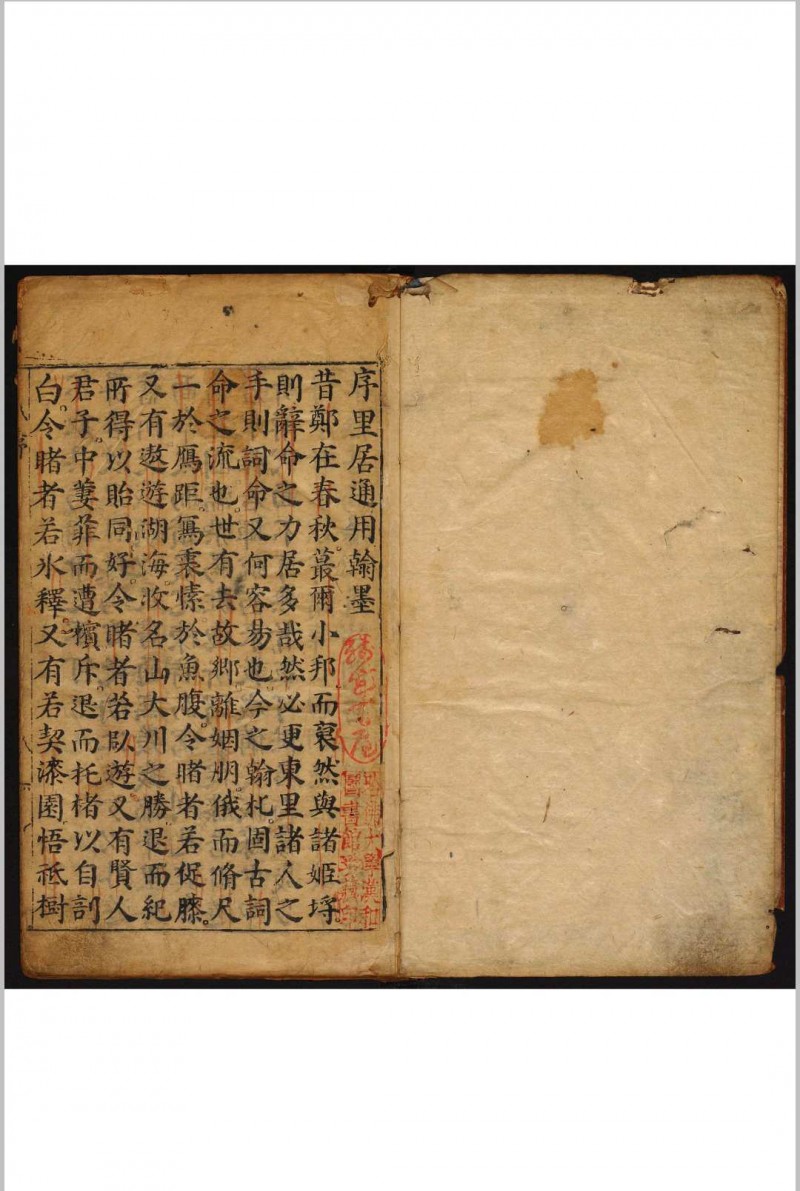 序里居通用翰墨
昔鄭在春秋蕞爾小邦而裒然與諸姬埒
則辭命之力居多哉然必更東里諸人之
手則詞命又何容易也今之翰札固古詞
命之流也世有去故鄉離姻朋俄而脩尺
一於鴈距寫裏愫於魚腹令睹者若促膝
又有遨遊湖海收名山大川之勝退而紀
所得以貽同好令睹者若臥遊又有賢人
君子中萋菲而遭擯斥退而托楮以自訓
白令睹者若氷釋又有若契漆園悟祗樹
序
哈佛大學漢和
圖書館珍藏印